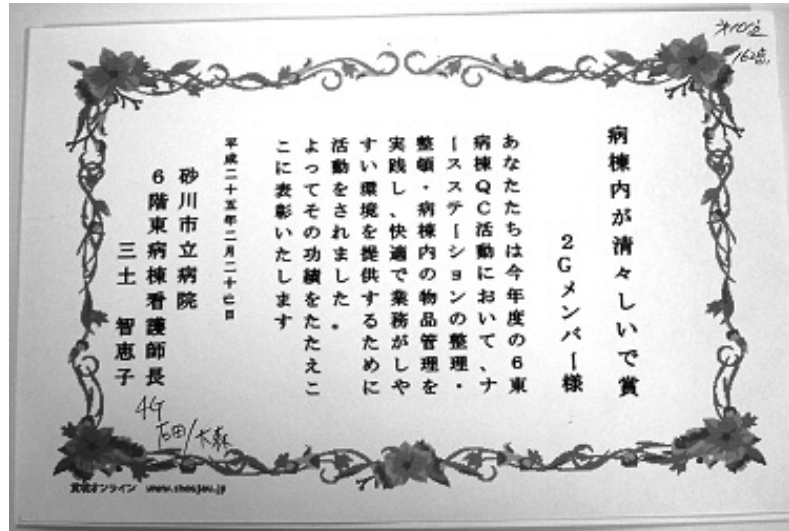 病棟内が清々しいで賞
2Gメンバー様
あなたたちは今年度の6東
病棟QC活動において、ナ
ースステーションの整理・
整頓・病棟内の物品管理を
実践し、快適で業務がしや
すい環境を提供するために
活動をされました。
よってその功績をたたえこ
こに表彰いたします
平成二十五年二月二十七日
砂川市立病院
6階東病棟看護師長
三土 智恵子
4G
石田/大森
賞状オンライン www.shoujou.jp